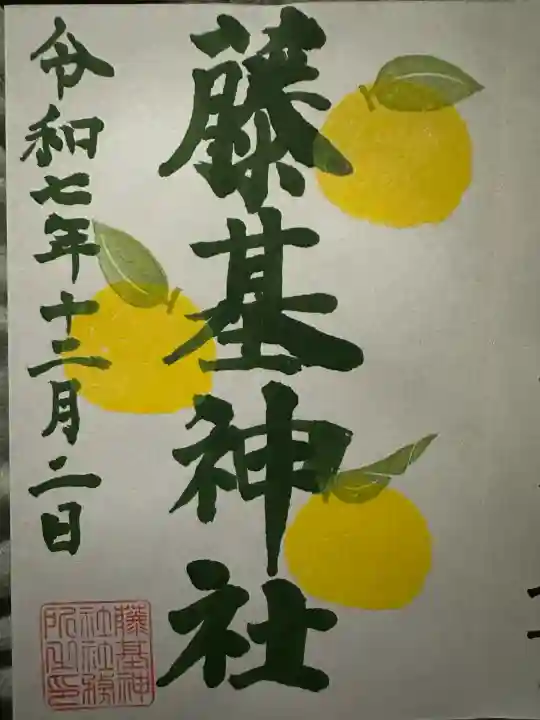 藤基神社
令和七年十二月二日
藤基神
社社務
所之印